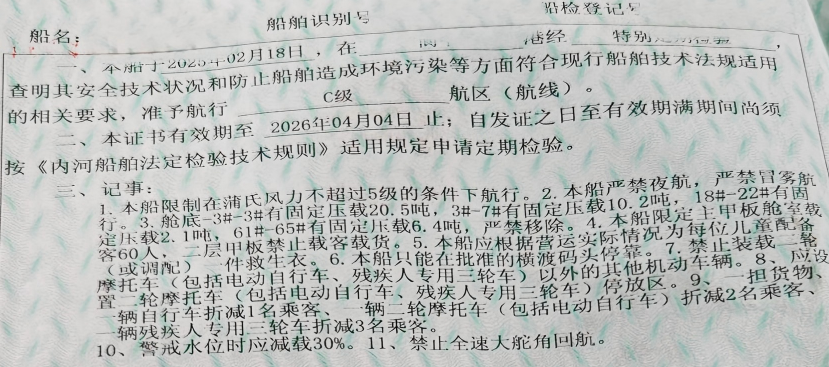 船舶识别号 船检登记号
船名：
一、本船于2025年02月18日，在 港经 特别定期检验，
查明其安全技术状况和防止船舶造成环境污染等方面符合现行船舶技术法规适用
的相关要求，准予航行 C级 航区（航线）。
二、本证书有效期至 2026年04月04日 止；自发证之日至有效期满期间尚须
按《内河船舶法定检验技术规则》适用规定申请定期检验。
三、记事：
1.本船限制在蒲氏风力不超过5级的条件下航行。2.本船严禁夜航，严禁冒雾航
行。3.舱底-3#-3#有固定压载20.5吨，3#-7#有固定压载10.2吨，18#-22#有固
定压载2.1吨，61#-65#有固定压载6.4吨，严禁移除。4.本船限定主甲板舱室载
客60人，二层甲板禁止载客载货。5.本船应根据营运实际情况为每位儿童配备
（或调配）一件救生衣。6.本船只能在批准的横渡码头停靠。7.禁止装载二轮
摩托车（包括电动自行车、残疾人专用三轮车）以外的其他机动车辆。8、应设
置二轮摩托车（包括电动自行车、残疾人专用三轮车）停放区。9、一担货物、
一辆自行车折减1名乘客、一辆二轮摩托车（包括电动自行车）折减2名乘客、
一辆残疾人专用三轮车折减3名乘客。
10、警戒水位时应减载30%。11、禁止全速大舵角回航。